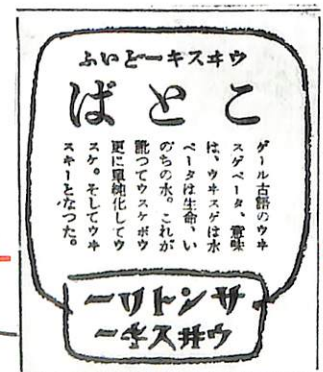 ウヰスキーといふ
ことば
ゲール古語のウヰ
スゲベータ、意味
は、ウヰスゲは水
ベータは生命、い
のちの水。これが
訛つてウスケボウ
更に單純化してウ
スケ。そしてウヰ
スキーとなつた。
サントリー
ウヰスキー